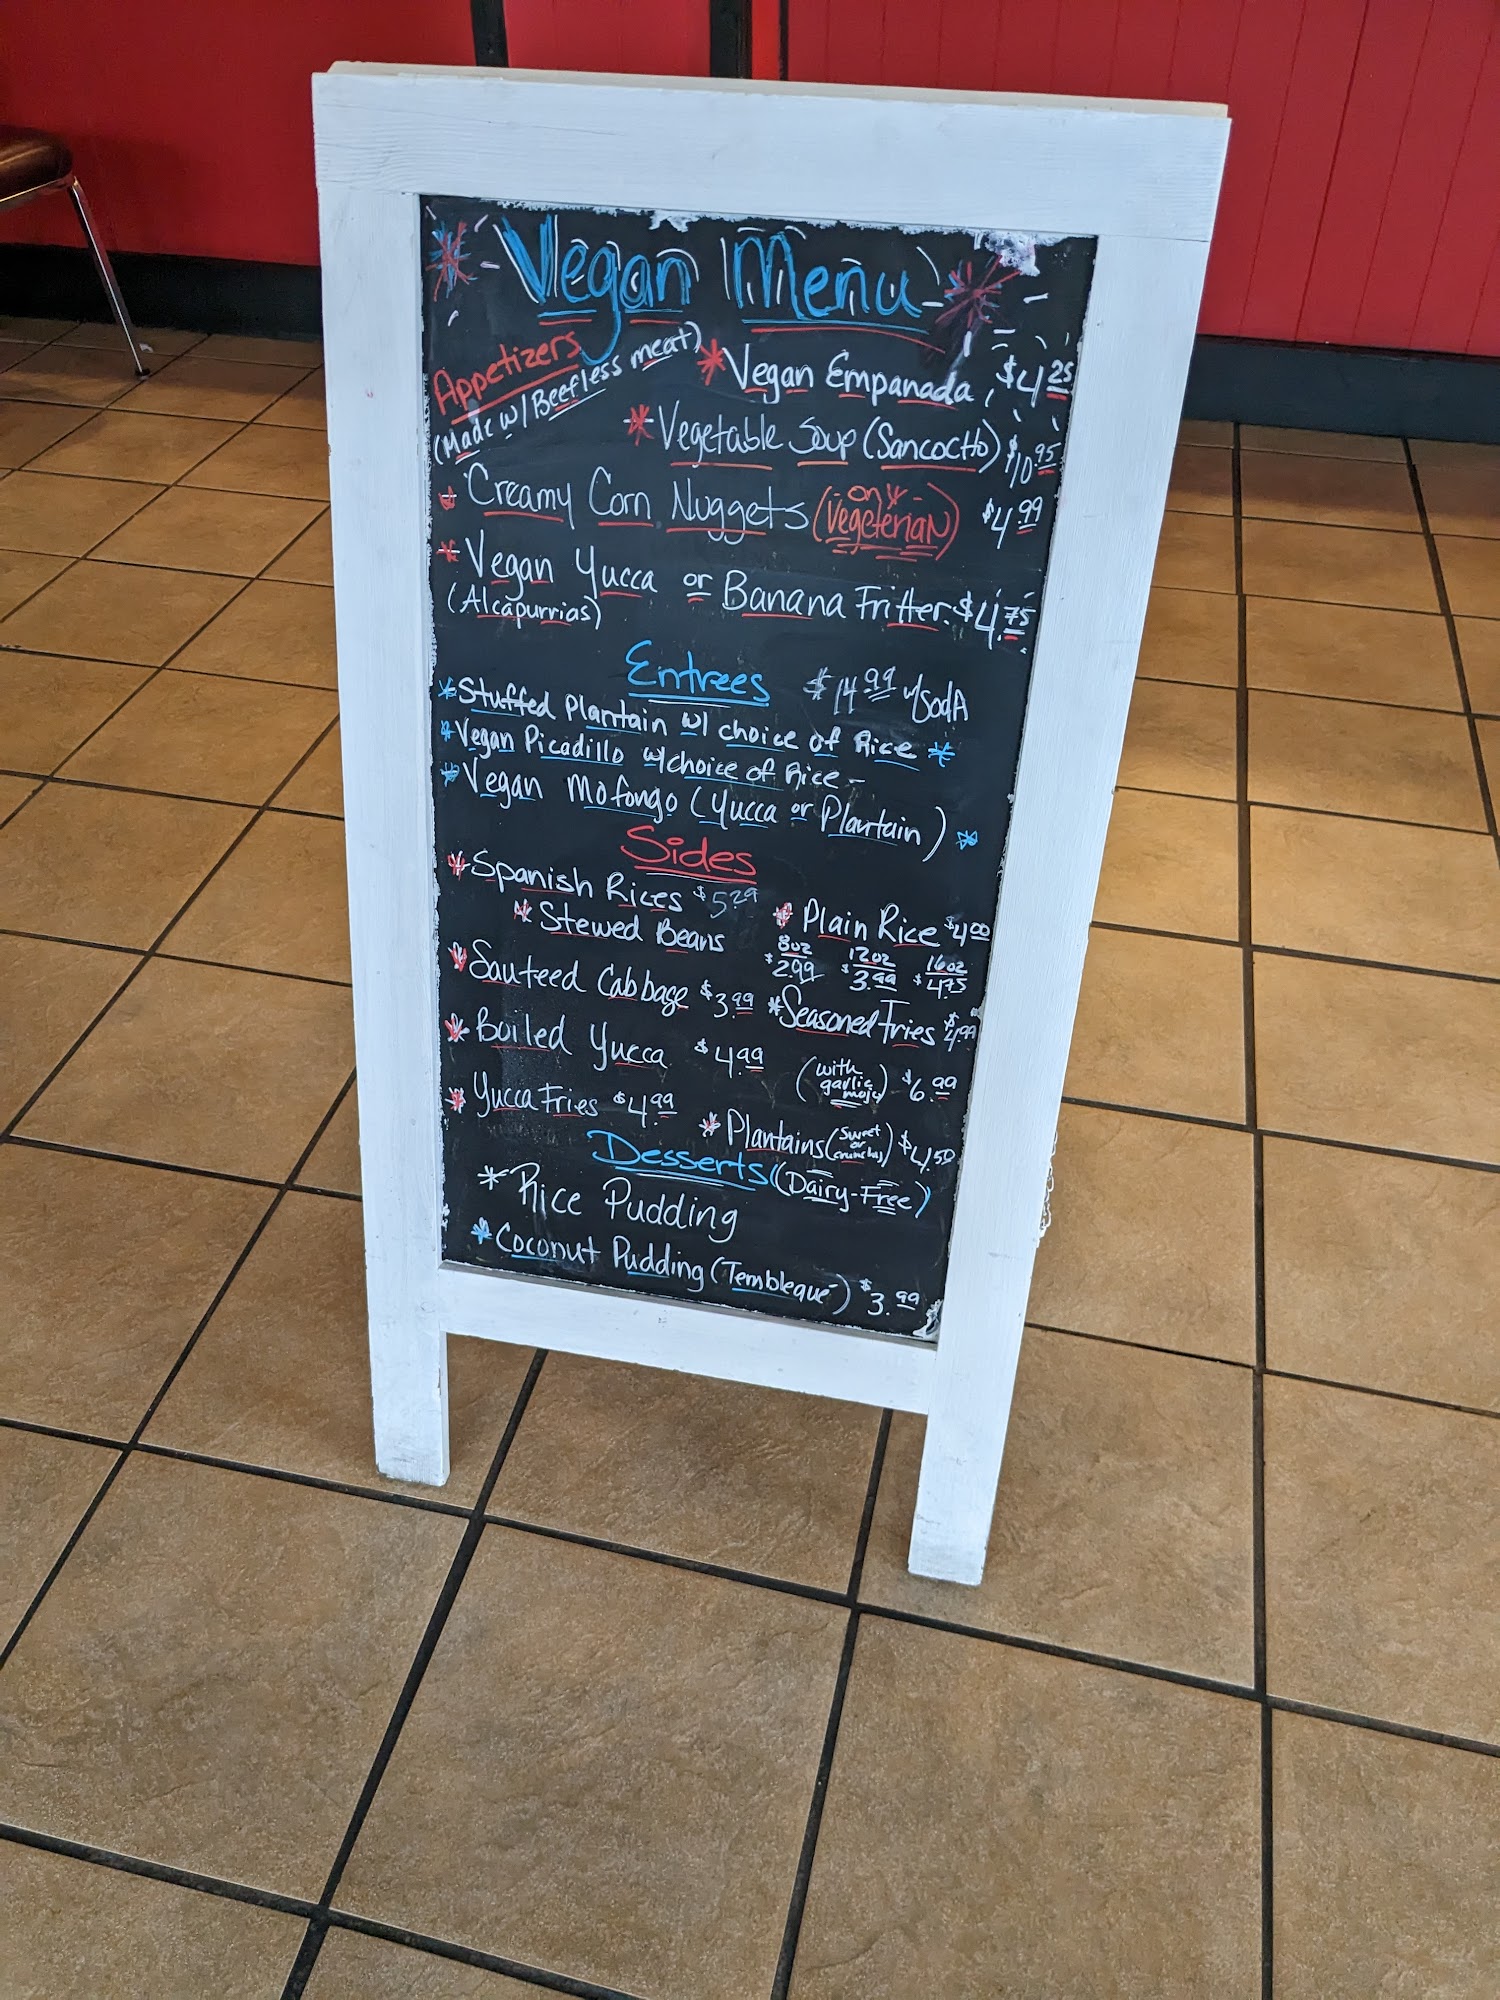 Vegan Menu
Appetizers
(Made w/ Beefless meat)
Vegan Empanada $4.25
Vegetable Soup (Sancocho) $10.95
Creamy Corn Nuggets (only Vegeterian) $4.99
Vegan Yucca or Banana Fritter. $4.75
(Alcapurrias)
Entrees $14.99 w/ Soda
Stuffed Plantain w/ choice of Rice
Vegan Picadillo w/ choice of Rice -
Vegan Mofongo (Yucca or Plantain)
Sides
Spanish Rices $5.29
Plain Rice $4.00
Stewed Beans
8oz 12oz 16oz
$2.99 $3.99 $4.75
Sauteed Cabbage $3.99
Seasoned Fries $4.99
Boiled Yucca $4.99
(with garlic mojo) $6.99
Yucca Fries $4.99
Plantains (sweet or crunchy) $4.50
Desserts (Dairy-Free)
Rice Pudding
Coconut Pudding (Tembleque) $3.99